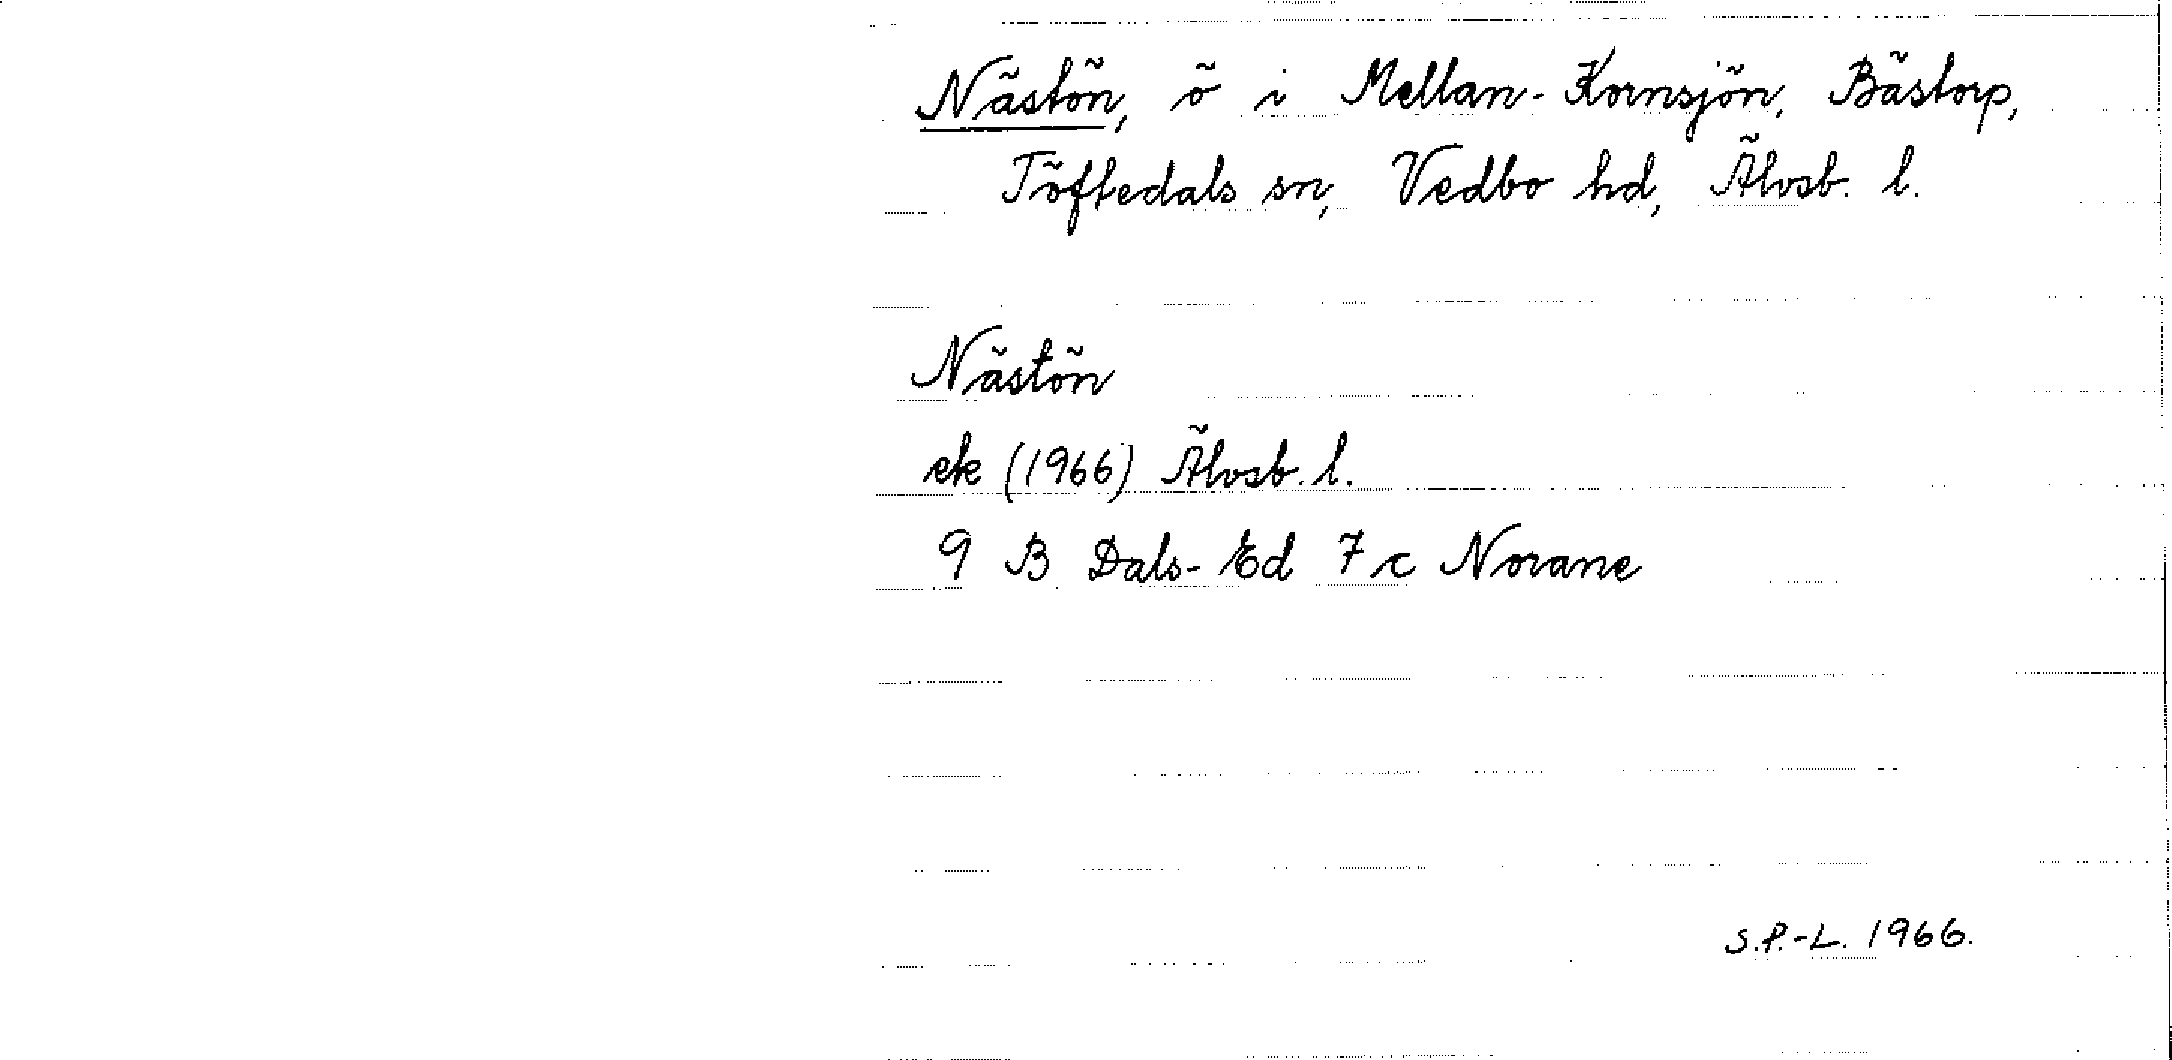 Nästön, ö i Mellan-Kornsjön, Bästorp,
Töftedals sn, Vedbo hd, Älvsb. l.
Nästön
ek (1966) Älvsb. l.
9 B Dals-Ed 7 c Norane
S.P.-L. 1966.